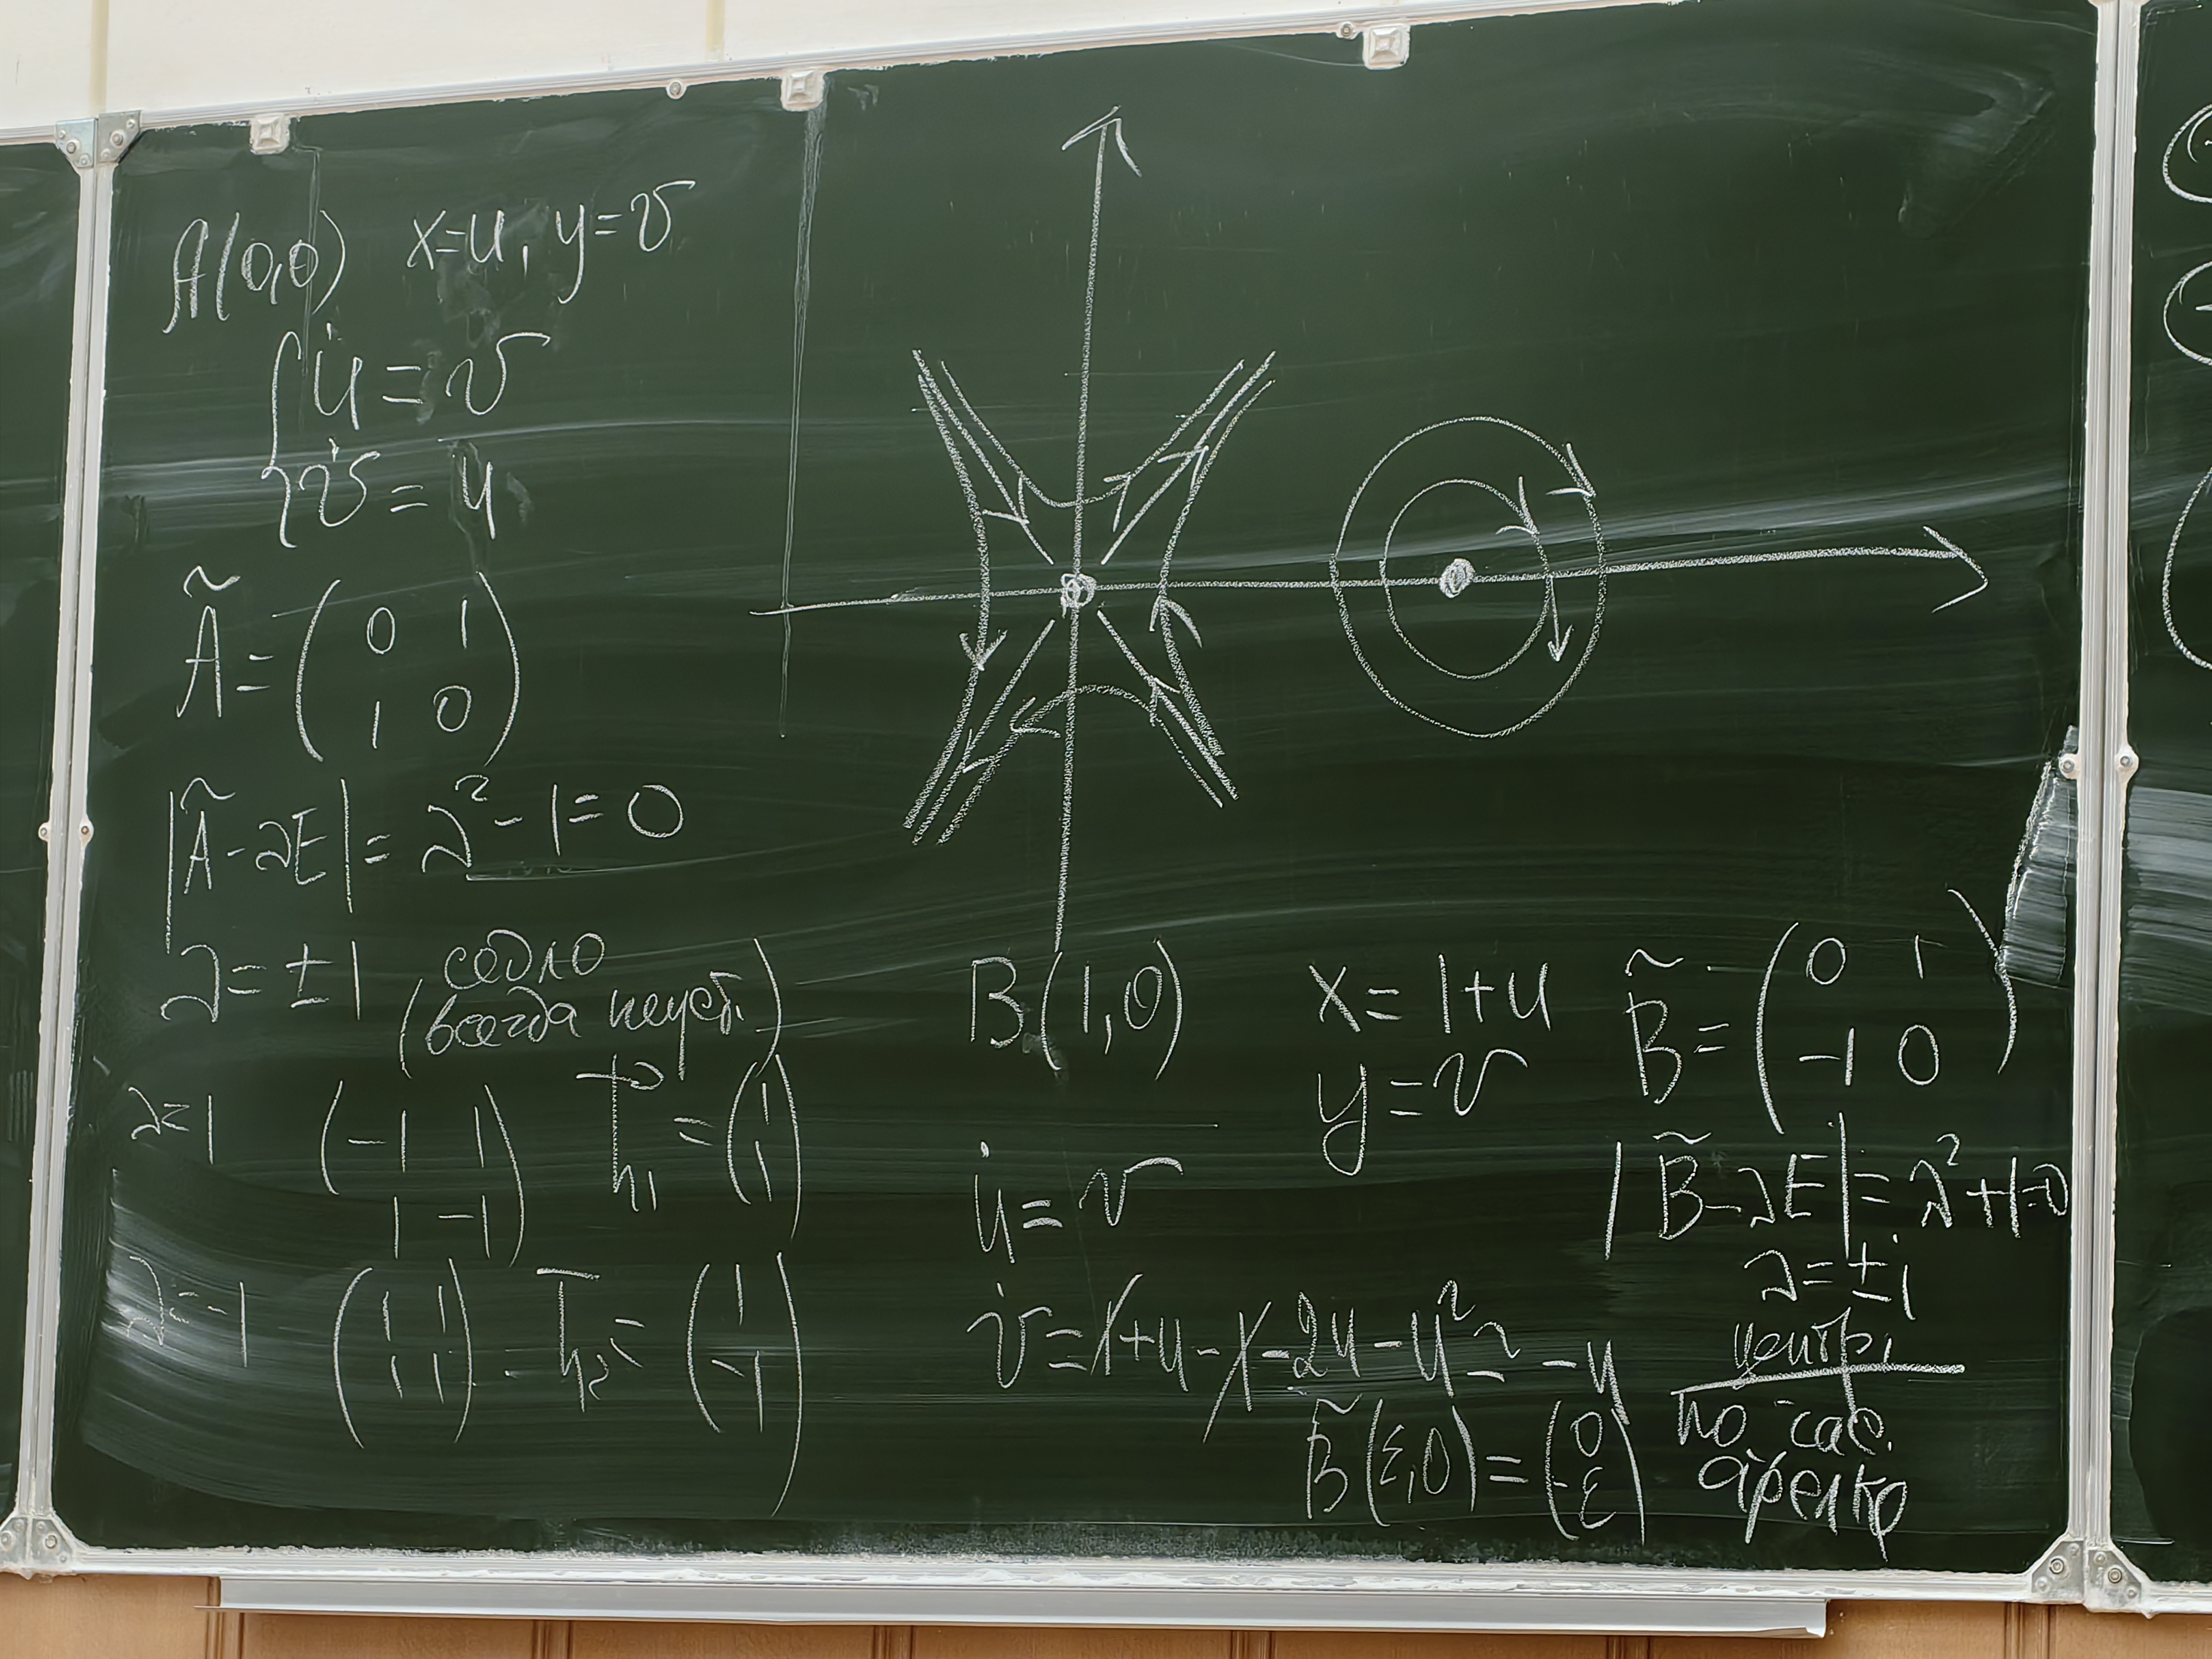 A(0,0) x=u, y=v
{ u̇ = v
v̇ = u
Ã = ( 0 1
1 0 )
|Ã - λE| = λ² - 1 = 0
λ = ±1 седло
(всегда неуст.)
λ=1 ( -1 1
1 -1 ) h̄₁ = ( 1
1 )
λ=-1 ( 1 1
1 1 ) h̄₂ = ( 1
-1 )
B(1,0) x = 1+u
y = v
u̇ = v
v̇ = 1+u-1-2u-u² ≈ -u
B̃ = ( 0 1
-1 0 )
|B̃ - λE| = λ²+1=0
λ = ±i
центр,
по час.
стрелке
B̃(ε,0) = ( 0
-ε )